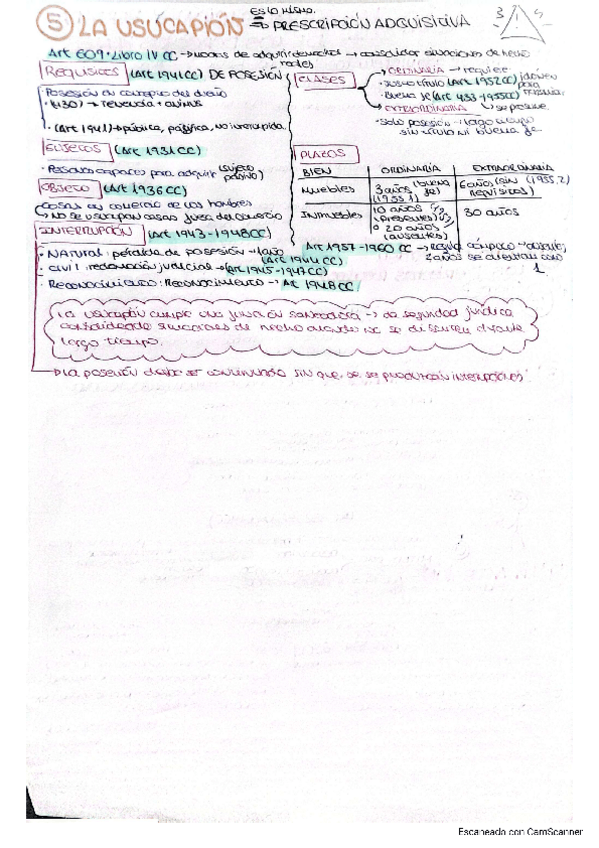 ⑤ LA USUCAPIÓN = PRESCRIPCIÓN ADQUISITIVA
ES LO MISMO.
3 1 4
Art 609 · Libro IV CC → modos de adquirir derechos reales → consolidar situaciones de hecho
REQUISITOS (Art 1941 CC) DE POSESIÓN
Posesión en concepto del dueño
(430) → tenencia + animus
· (Art 1941) → pública, pacífica, no interrumpida.
SUJETOS (Art 1931 CC)
· Personas capaces para adquirir (sujeto pasivo)
OBJETO (Art 1936 CC)
Cosas en comercio de los hombres
→ NO se usucapan cosas fuera del comercio
INTERRUPCIÓN (Art 1943-1948 CC)
· NATURAL: pérdida de POSESIÓN → 1 año (Art 1944 CC)
· CIVIL: reclamación judicial → (Art 1945-1947 CC)
· Reconocimiento: Reconocimiento → Art 1948 CC
CLASES
ORDINARIA → requiere
· JUSTO TÍTULO (Art 1952 CC) idóneo para
· Buena fe (Art 433 → 1950 CC)
EXTRAORDINARIA
· Solo posesión → largo tiempo sin título ni buena fe
PLAZOS
BIEN | ORDINARIA | EXTRAORDINARIA
Muebles | 3 años (buena fe) (1955.1) | 6 años (sin requisitos) (1955.2)
Inmuebles | 10 años (presentes) o 20 años (ausentes) | 30 años
Art 1957-1960 CC → Regla cómputo → ausente, 2 años se cuentan como 1
La usucapión cumple una función sanadora → da seguridad jurídica
consolidando situaciones de hecho cuando no se discuten durante
largo tiempo.
→ La posesión debe ser continuada sin que se produzcan interrupciones
Escaneado con CamScanner